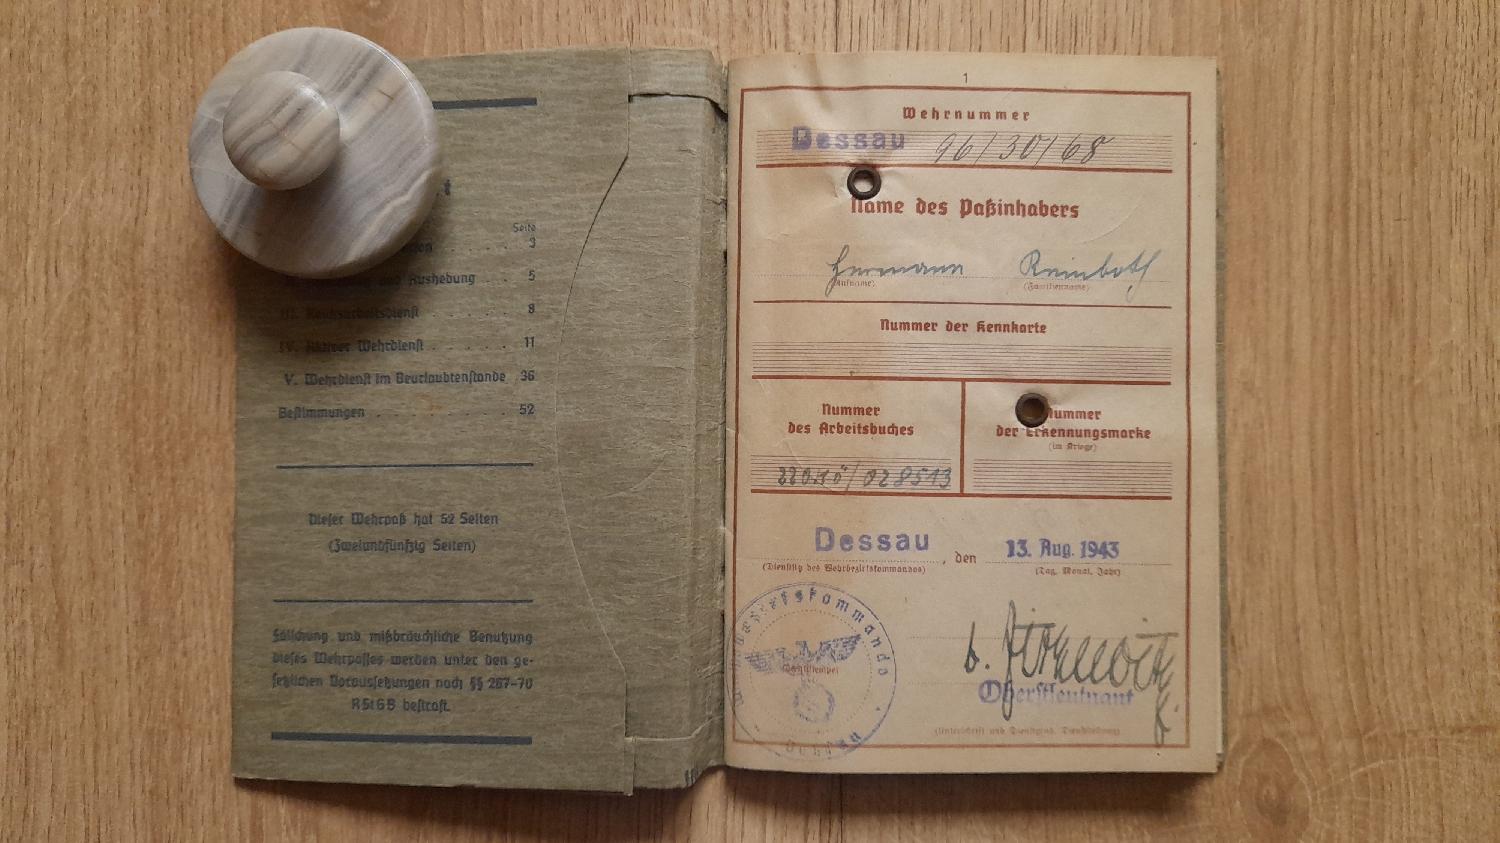 Seite
3
und Aushebung . . . 5
III. Reichsarbeitsdienst . . . . . 8
IV. Aktiver Wehrdienst . . . . . 11
V. Wehrdienst im Beurlaubtenstande 36
Bestimmungen . . . . . . . . 52
Dieser Wehrpaß hat 52 Seiten
(Zweiundfünfzig Seiten)
Fälschung und mißbräuchliche Benutzung
dieses Wehrpasses werden unter den ge-
setzlichen Voraussetzungen nach §§ 267–70
RStGB bestraft.
1
Wehrnummer
Dessau 96/30/68
Name des Paßinhabers
Hermann Reinboth
(Rufname) (Familienname)
Nummer der Kennkarte
Nummer des Arbeitsbuches
Nummer der Erkennungsmarke
(im Kriege)
Dessau, den 13. Aug. 1943
(Dienstsitz des Wehrbezirkskommandos) (Tag, Monat, Jahr)
Wehrbezirkskommando
Dessau
Oberstleutnant
(Unterschrift und Dienstgrad, Dienststellung)